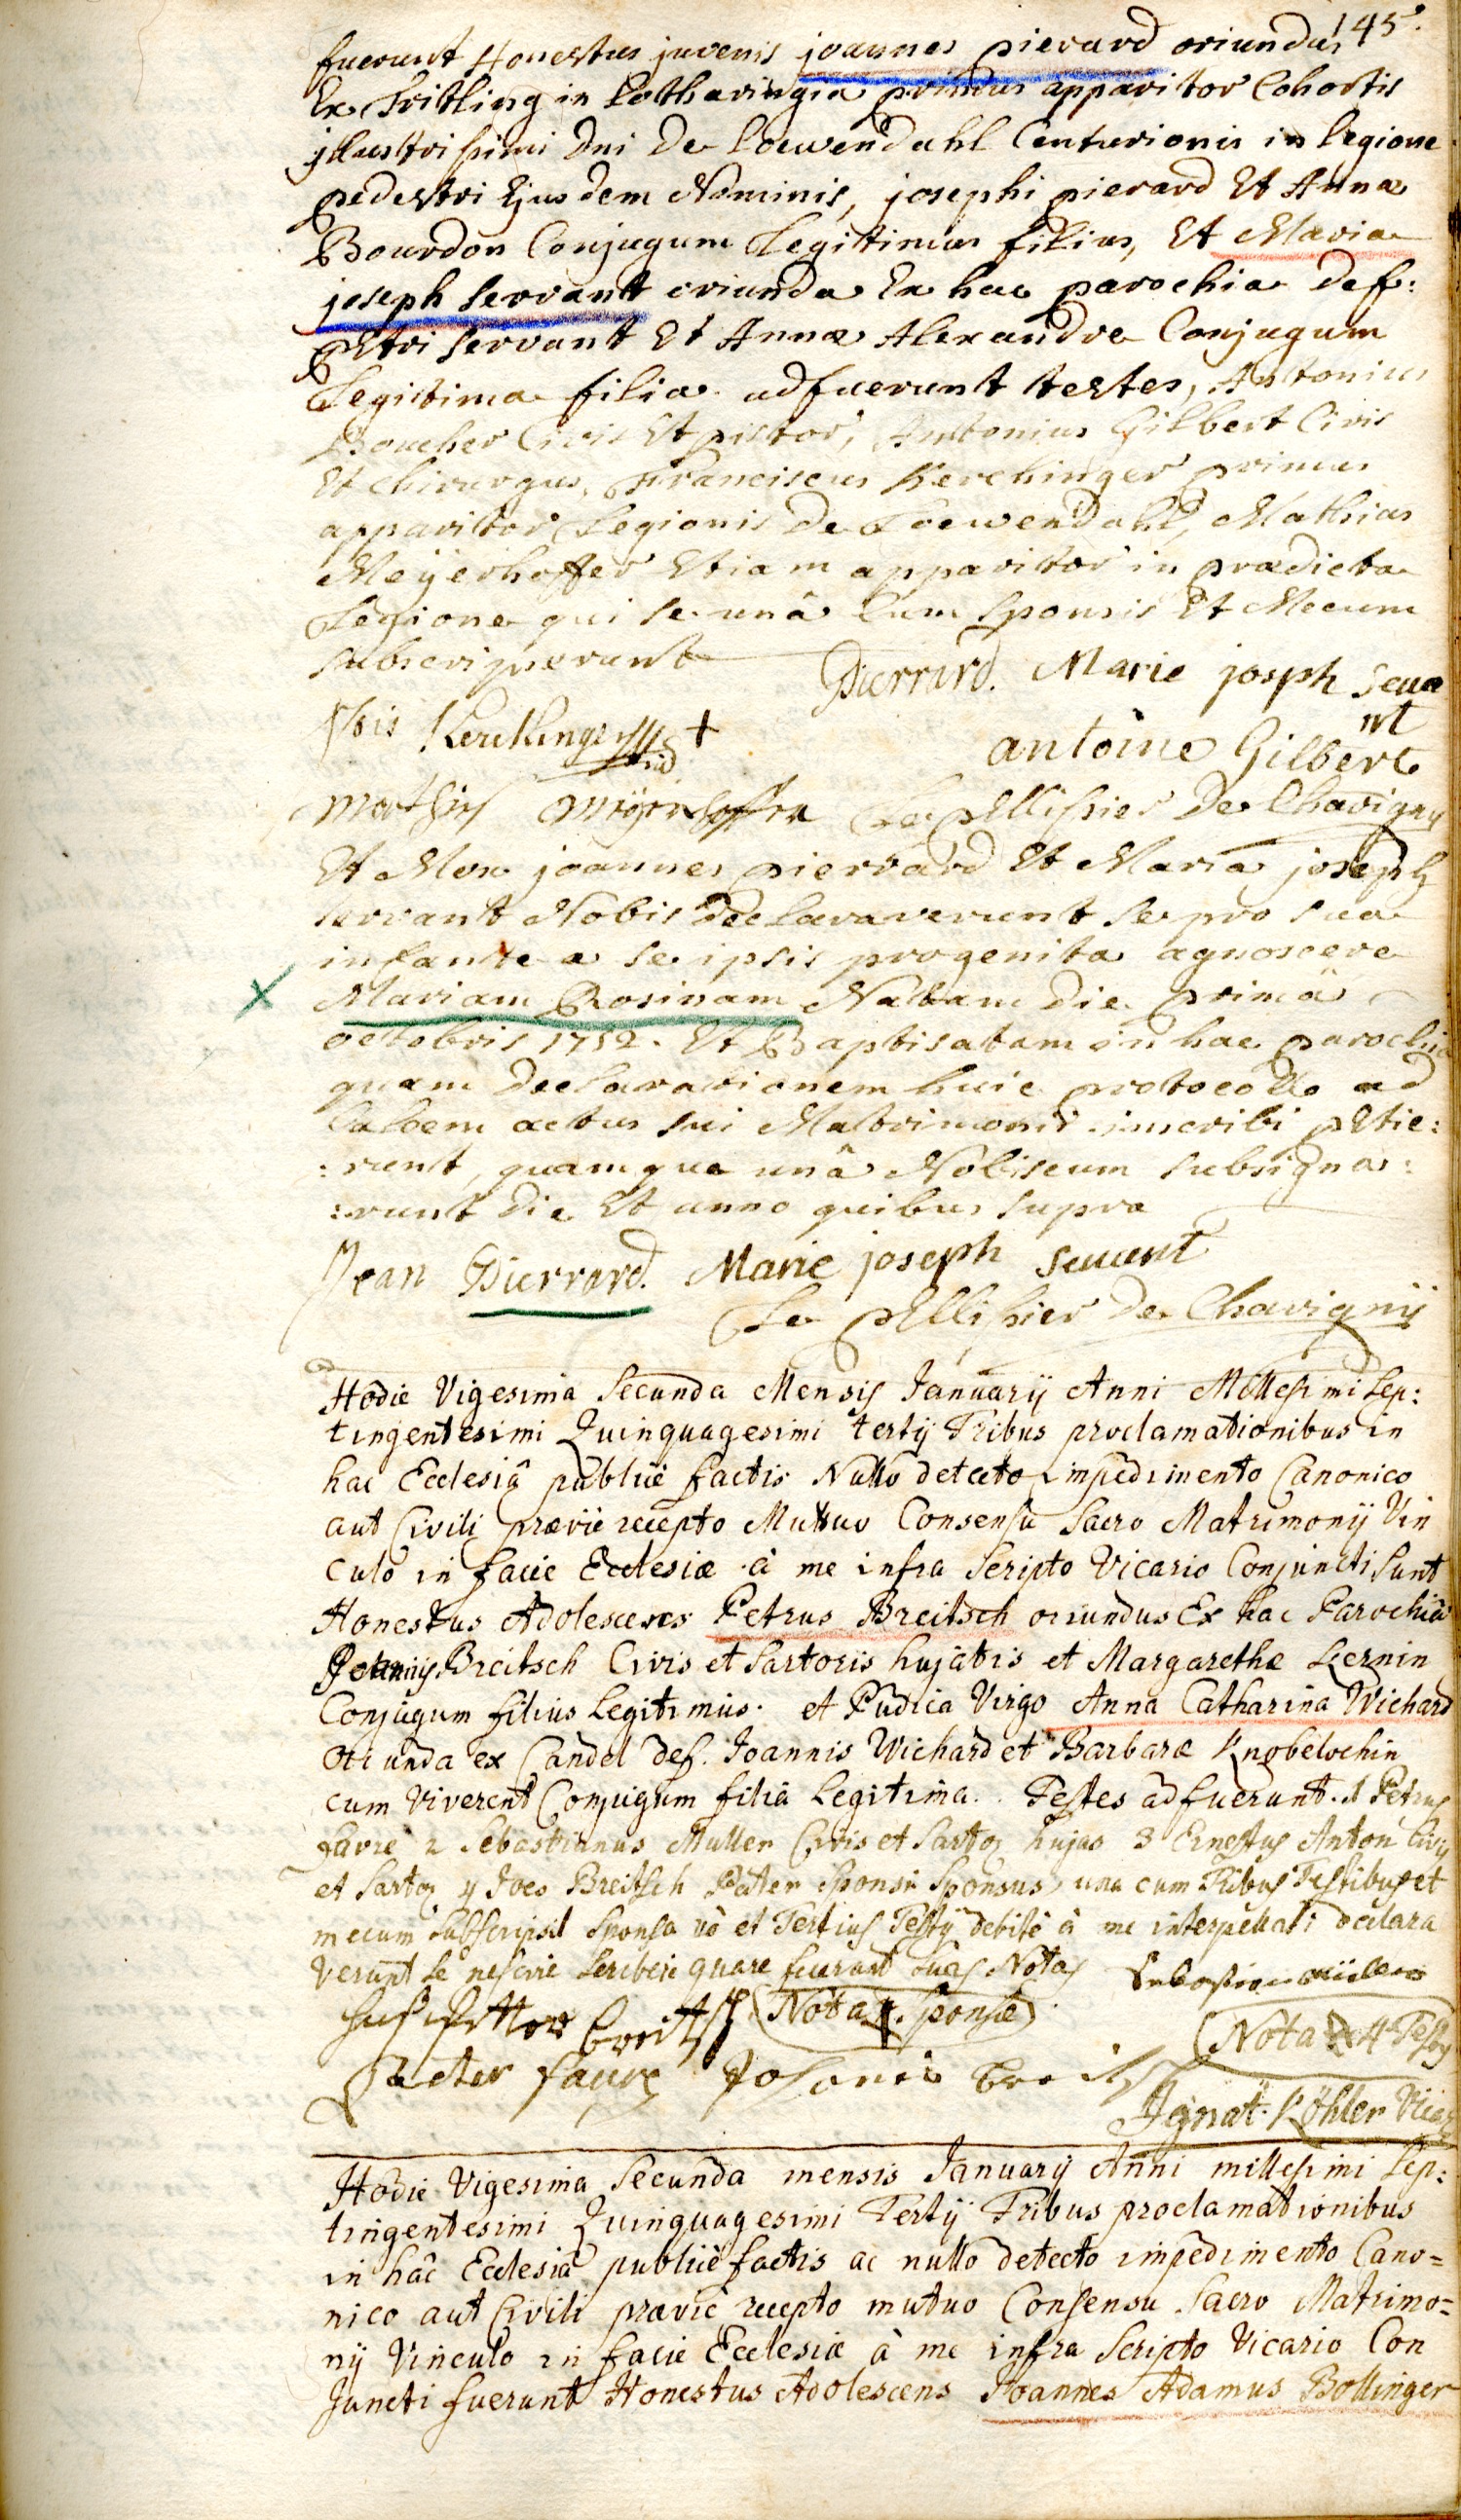 145.
fuerunt Honestus juvenis joannes pierard oriundus
Ex Tritling in Lotharingia primus apparitor Cohortis
jllustrissimi Dni De Loewendahl Centurionis in legione
pedestri Ejusdem Nominis, josephi pierard Et Annæ
Bourdon Conjugum Legitimus filius, Et Maria
joseph servant oriunda Ex hac parochia def:
petri servant Et Annæ Alexandre Conjugum
Legitima filia. adfuerunt testes, Antonius
Boucher Civis Et pistor, Antonius Gilbert Civis
Et Chirurgus, Franciscus Kerchinger primus
apparitor Legionis De Loewendahl, Mathias
Meÿerhoffer Etiam apparitor in prædicta
Legione qui se unâ Cum sponsis Et Mecum
subscripserunt
Pierrard. Marie josph seua
nt
frois Kerchinger +
antoine Gilbert
Mathias Meÿerhoffer Le pellissier De Chavigny
Et Mox joannes pierrard Et Maria joseph
servant Nobis Declaraverunt se pro sua
infante a se ipsis progenita agnoscere
x Mariam Rosinam Natam die primâ
octobris 1752. Et Baptisatam in hac parochia
quam Declarationem huic protocollo ad
Calcem actus sui Matrimonii inscribi petie:
:runt, quamque unâ Nobiscum subsigna:
:runt die Et anno quibus supra
Jean Pierrard. Marie joseph seuant
Le pellissier De Chavignÿ
Hodie Vigesima Secunda Mensis Januarÿ Anni Millesimi Sep:
tingentesimi Quinquagesimi tertÿ Tribus proclamationibus in
hac Ecclesiâ publicè factis Nullo detecto impedimento Canonico
aut Civili prævie recepto Mutuo Consensu Sacro Matrimonÿ Vin
culo in facie Ecclesiæ à me infra Scripto Vicario Conjuncti Sunt
Honestus Adolescens Petrus Breitsch oriundus Ex hac Parochiâ
Joannis Breitsch Civis et Sartoris hujatis et Margarethæ Lernin
Conjugum filius Legitimus. et Pudica Virgo Anna Catharina Wichard
Oriunda ex Candel def. Joannis Wichard et Barbaræ Knobelochin
cum Viverent Conjugum filia Legitima. Testes adfuerunt. 1 Petrus
favre 2 Sebastianus Muller Civis et Sartor hujas 3 Ernestus Anton Civis
et Sartor 4 Joes Breitsch Pater Sponsi Sponsus una cum Tribus Testibus et
mecum Subscripsit Sponsa vò et Tertius Testis debitè à me interpellati declara
verunt Se nescire Scribere quare fecerunt Suas Notas Sebastian müller
Breitsch Nota +. Sponsæ
Nota Testis
Peter favre Johannes Breitsch
Ignat. Köhler Vicar
Hodie Vigesima Secunda mensis Januarÿ Anni millesimi Sep:
tingentesimi Quinquagesimi Tertÿ Tribus proclamationibus
in hâc Ecclesiâ publicè factis ac nullo detecto impedimento Cano=
nico aut Civili prævie recepto mutuo Consensu Sacro Matrimo=
nÿ Vinculo in facie Ecclesiæ à me infra Scripto Vicario Con
Juncti fuerunt Honestus Adolescens Joannes Adamus Bollinger